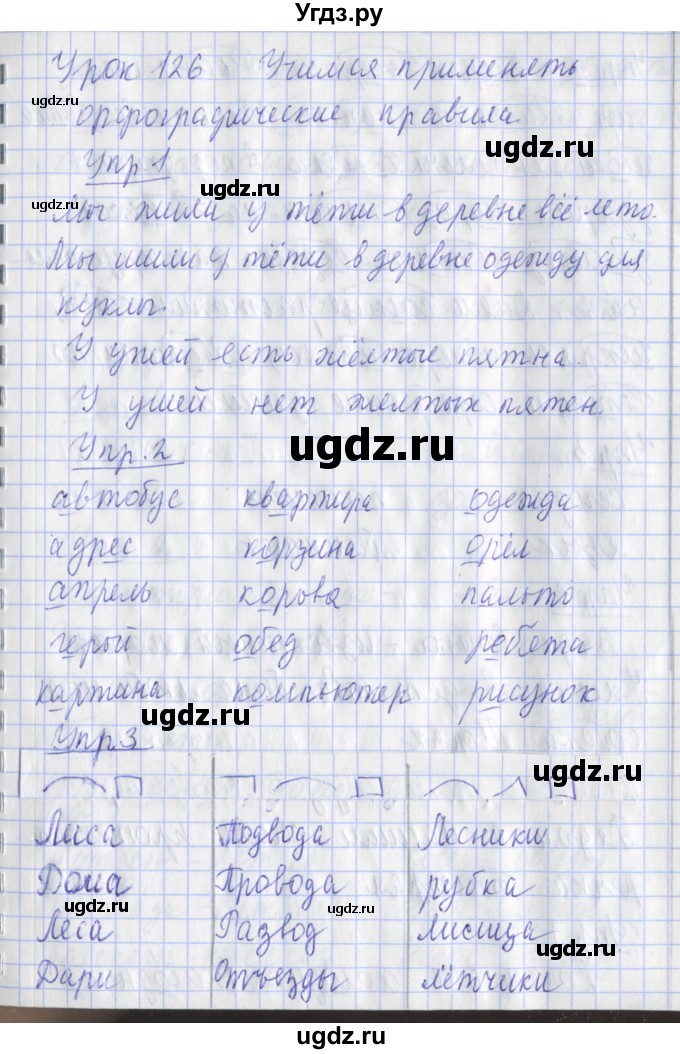 Угдз.ру
Урок 126 Учимся применять
ugdz.ru
орфографические правила
ugdz.ru
Упр 1
ugdz.ru
Мы жили у тёти в деревне всё лето.
Мы шили у тёти в деревне одежду для
куклы.
У ужей есть жёлтые пятна.
У ушей нет желтых пятен.
Упр. 2
ugdz.ru
автобус квартира одежда
адрес корзина орёл
апрель корова пальто
герый обед ребота
картина компьютер рисунок
ugdz.ru
Упр 3
ugdz.ru
Лиса Подвода Лесники
Дома Провода рубка
ugdz.ru ugdz.ru
Леса Развод лисица
ugdz.ru
Дари Отъезды лётчики
ugdz.ru